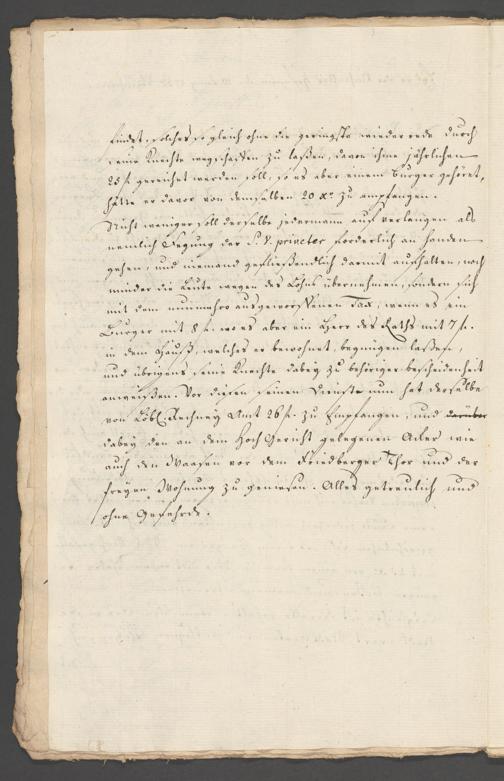 findet, solches sogleich ohne die geringste wiederrede durch
seine Knechte wegschaffen zu laßen, davor ihme jährlichen
25 fl. gereichet werden soll, so es aber einem Burger gehöret,
hätte er davor von demselben 20 xr. zu empfangen.
Nicht weniger soll derselbe jedermann auf verlangen als
nemlich Fegung der S. V. priveter forderlich an handen
gehen, und niemand geflissendlich darmit aufhalten, noch
minder die Leute wegen des Lohns übernehmen, sondern sich
mit dem nunmehro ausgeworffenen Tax, wenn es ein
Burger mit 8 fl. wo es aber ein Herr des Raths mit 7 fl.
in dem Hauß, welches er bewohnet, begnügen laßen,
und übrigens seine Knechte dabey zu behöriger bescheidenheit
anweißen. Vor diesen seinen Dienst nun hat derselbe
von Löbl. Rechney Amt 26 fl. zu Empfangen, und darüber
dabey den an dem Hoch Gericht gelegenen Acker wie
auch den Waasen vor dem Friedberger Thor und der
freyen Wohnung zu geniesen. Alles getreulich und
ohne Gefehrde.